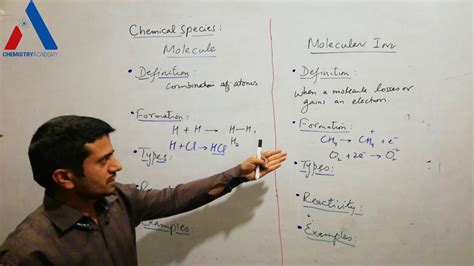 CHEMISTRY ACADEMY
Chemical Species:
Molecule
• Definition:
Combination of atoms.
• Formation:
H + H → H—H,
H₂
H + Cl → HCl
• Types:
Examples:
Molecular Ion
• Definition:
When a molecule losses or
gains an electron.
• Formation:
CH₄ → CH₄⁺ + e⁻
O₂ + 2e⁻ → O₂⁻²
• Types:
• Reactivity:
• Examples: